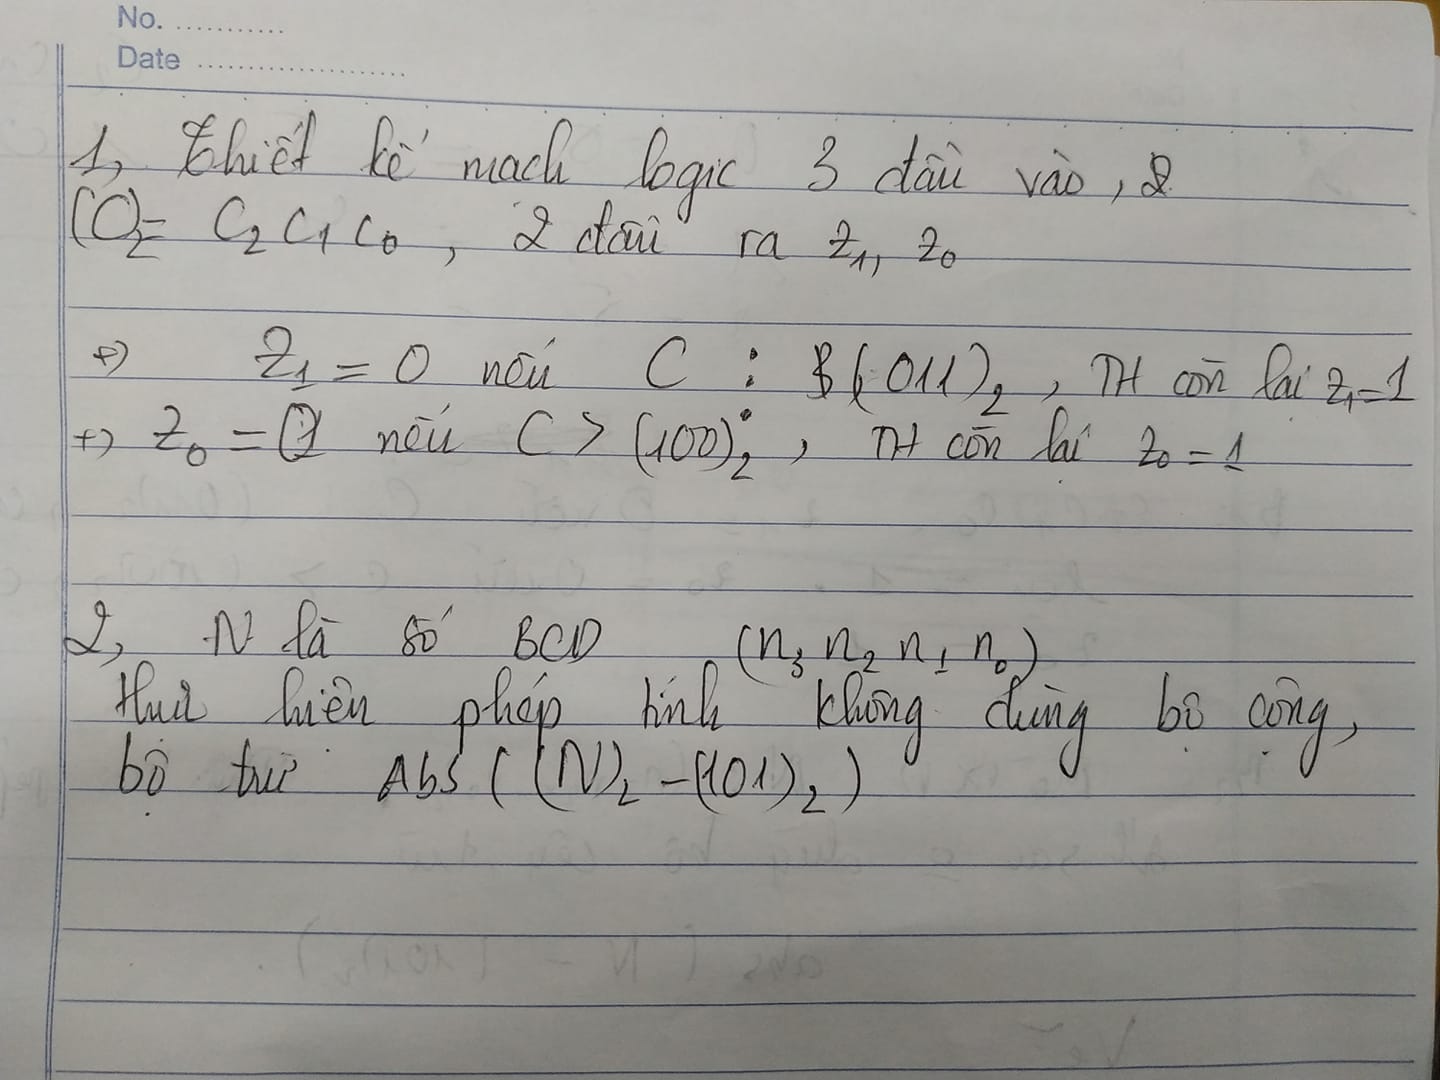 No. ...........
Date .....................
1, thiết kế mach logic 3 đầu vào, 2
(C)₂= C₂ C₁ C₀, 2 đầu ra Z₁, Z₀
+) Z₁ = 0 nếu C : (011)₂, TH còn lại Z₁=1
+) Z₀ = nếu C > (100)₂, TH còn lại Z₀ = 1
2, N là số BCD (n₃ n₂ n₁ n₀)
thực hiên phép tính không dùng bộ công,
bộ trừ Abs ( (N)₂ - (101)₂ )